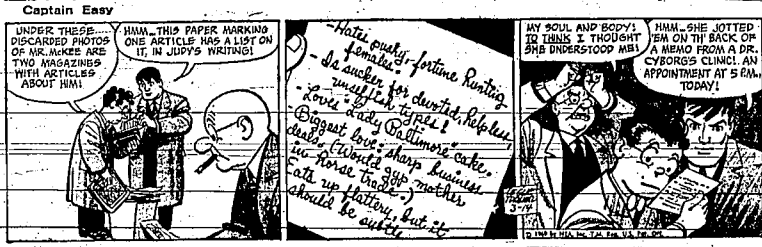 Captain Easy
UNDER THESE
DISCARDED PHOTOS
OF MR. McKEE ARE
TWO MAGAZINES
WITH ARTICLES
ABOUT HIM!
HMM...THIS PAPER MARKING
ONE ARTICLE HAS A LIST ON
IT, IN JUDY'S WRITING!
-Hates pushy, fortune hunting
females.
- Is sucker for devoted, helpless,
unselfish types!
- Loves "Lady Baltimore" cake.
- Biggest love: sharp business
deals. (Would gyp mother
in horse trade.)
Eats up flattery, but it
should be subtle
3-14
MY SOUL AND BODY!
TO THINK I THOUGHT
SHE UNDERSTOOD ME!
HMM...SHE JOTTED
'EM ON TH' BACK OF
A MEMO FROM A DR.
CYBORG'S CLINIC! AN
APPOINTMENT AT 5 P.M.,
TODAY!
© 1969 by NEA, Inc. T.M. Reg. U.S. Pat. Off.